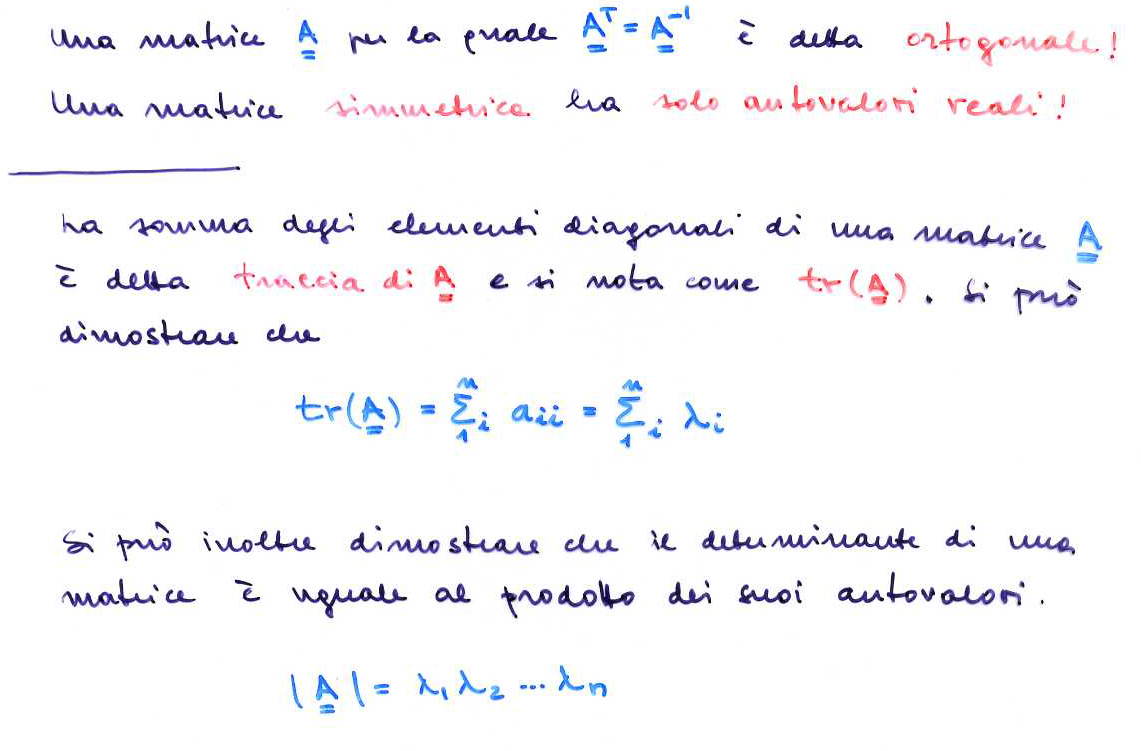 Una matrice A per la quale Aᵀ = A⁻¹ è detta ortogonale!
Una matrice simmetrica ha solo autovalori reali!
La somma degli elementi diagonali di una matrice A
è detta traccia di A e si nota come tr(A). Si può
dimostrare che
tr(A) = Σ₁ⁿᵢ aᵢᵢ = Σ₁ⁿᵢ λᵢ
Si può inoltre dimostrare che il determinante di una
matrice è uguale al prodotto dei suoi autovalori.
|A| = λ₁ λ₂ ... λₙ